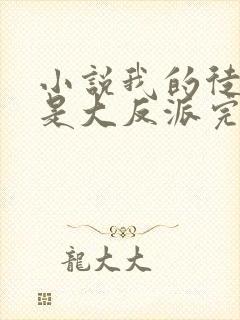 小說我的徒
是大反派完
龍大大